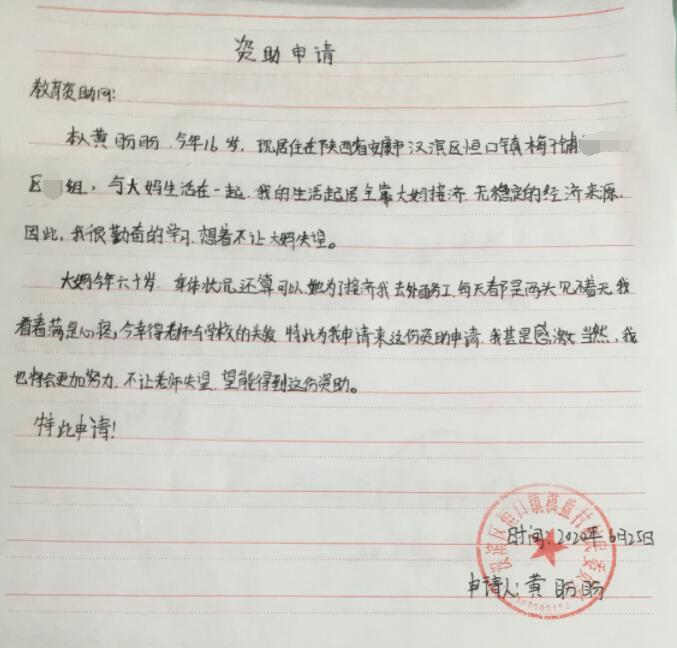 资助申请
教育资助网：
本人黄盼盼，今年16岁，现居住在陕西省安康市汉滨区恒口镇梅子铺
区 组，与大妈生活在一起，我的生活起居全靠大妈接济，无稳定的经济来源，
因此，我很勤奋的学习，想着不让大妈失望。
大妈今年六十岁，身体状况还算可以，她为了接济我去外面务工，每天都是两头见不着天，我
看着满是心疼，今幸得老师与学校的关爱，特此为我申请来这份资助申请，我甚是感激，当然，我
也将会更加努力，不让老师失望，望能得到这份资助。
特此申请！
汉滨区恒口镇 村村民委员会
时间：2020年6月25日
申请人：黄盼盼